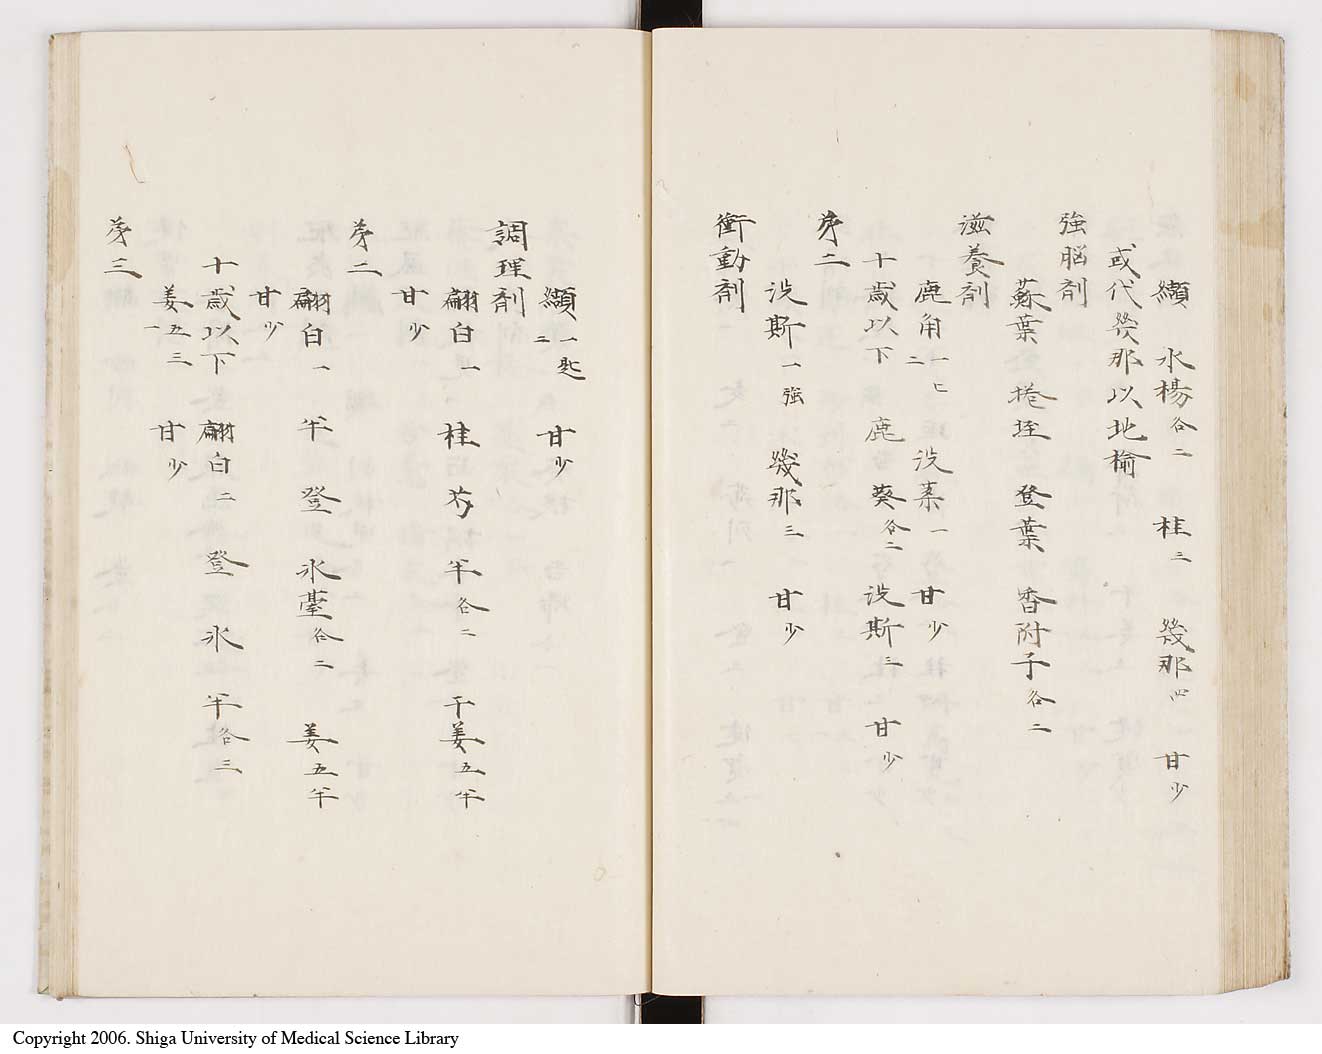 纈 水楊各二 桂三 幾那四 甘少
或代幾那以地榆
強脳剤
蘇葉 捲 登葉 香附子各二
滋養剤
鹿角一匕二 没薬一 甘少
十歳以下 鹿 葵各二 没斯三 甘少
第二
没斯一強 幾那三 甘少
衝動剤
纈一匙二 甘少
調理剤
翩白一 桂 芍 半各二 干姜五半
甘少
第二
翩白一 半 登 水 各二 姜五半
甘少
十歳以下 翩白二 登 水 半各三
姜五三一 甘少
第三
Copyright 2006. Shiga University of Medical Science Library